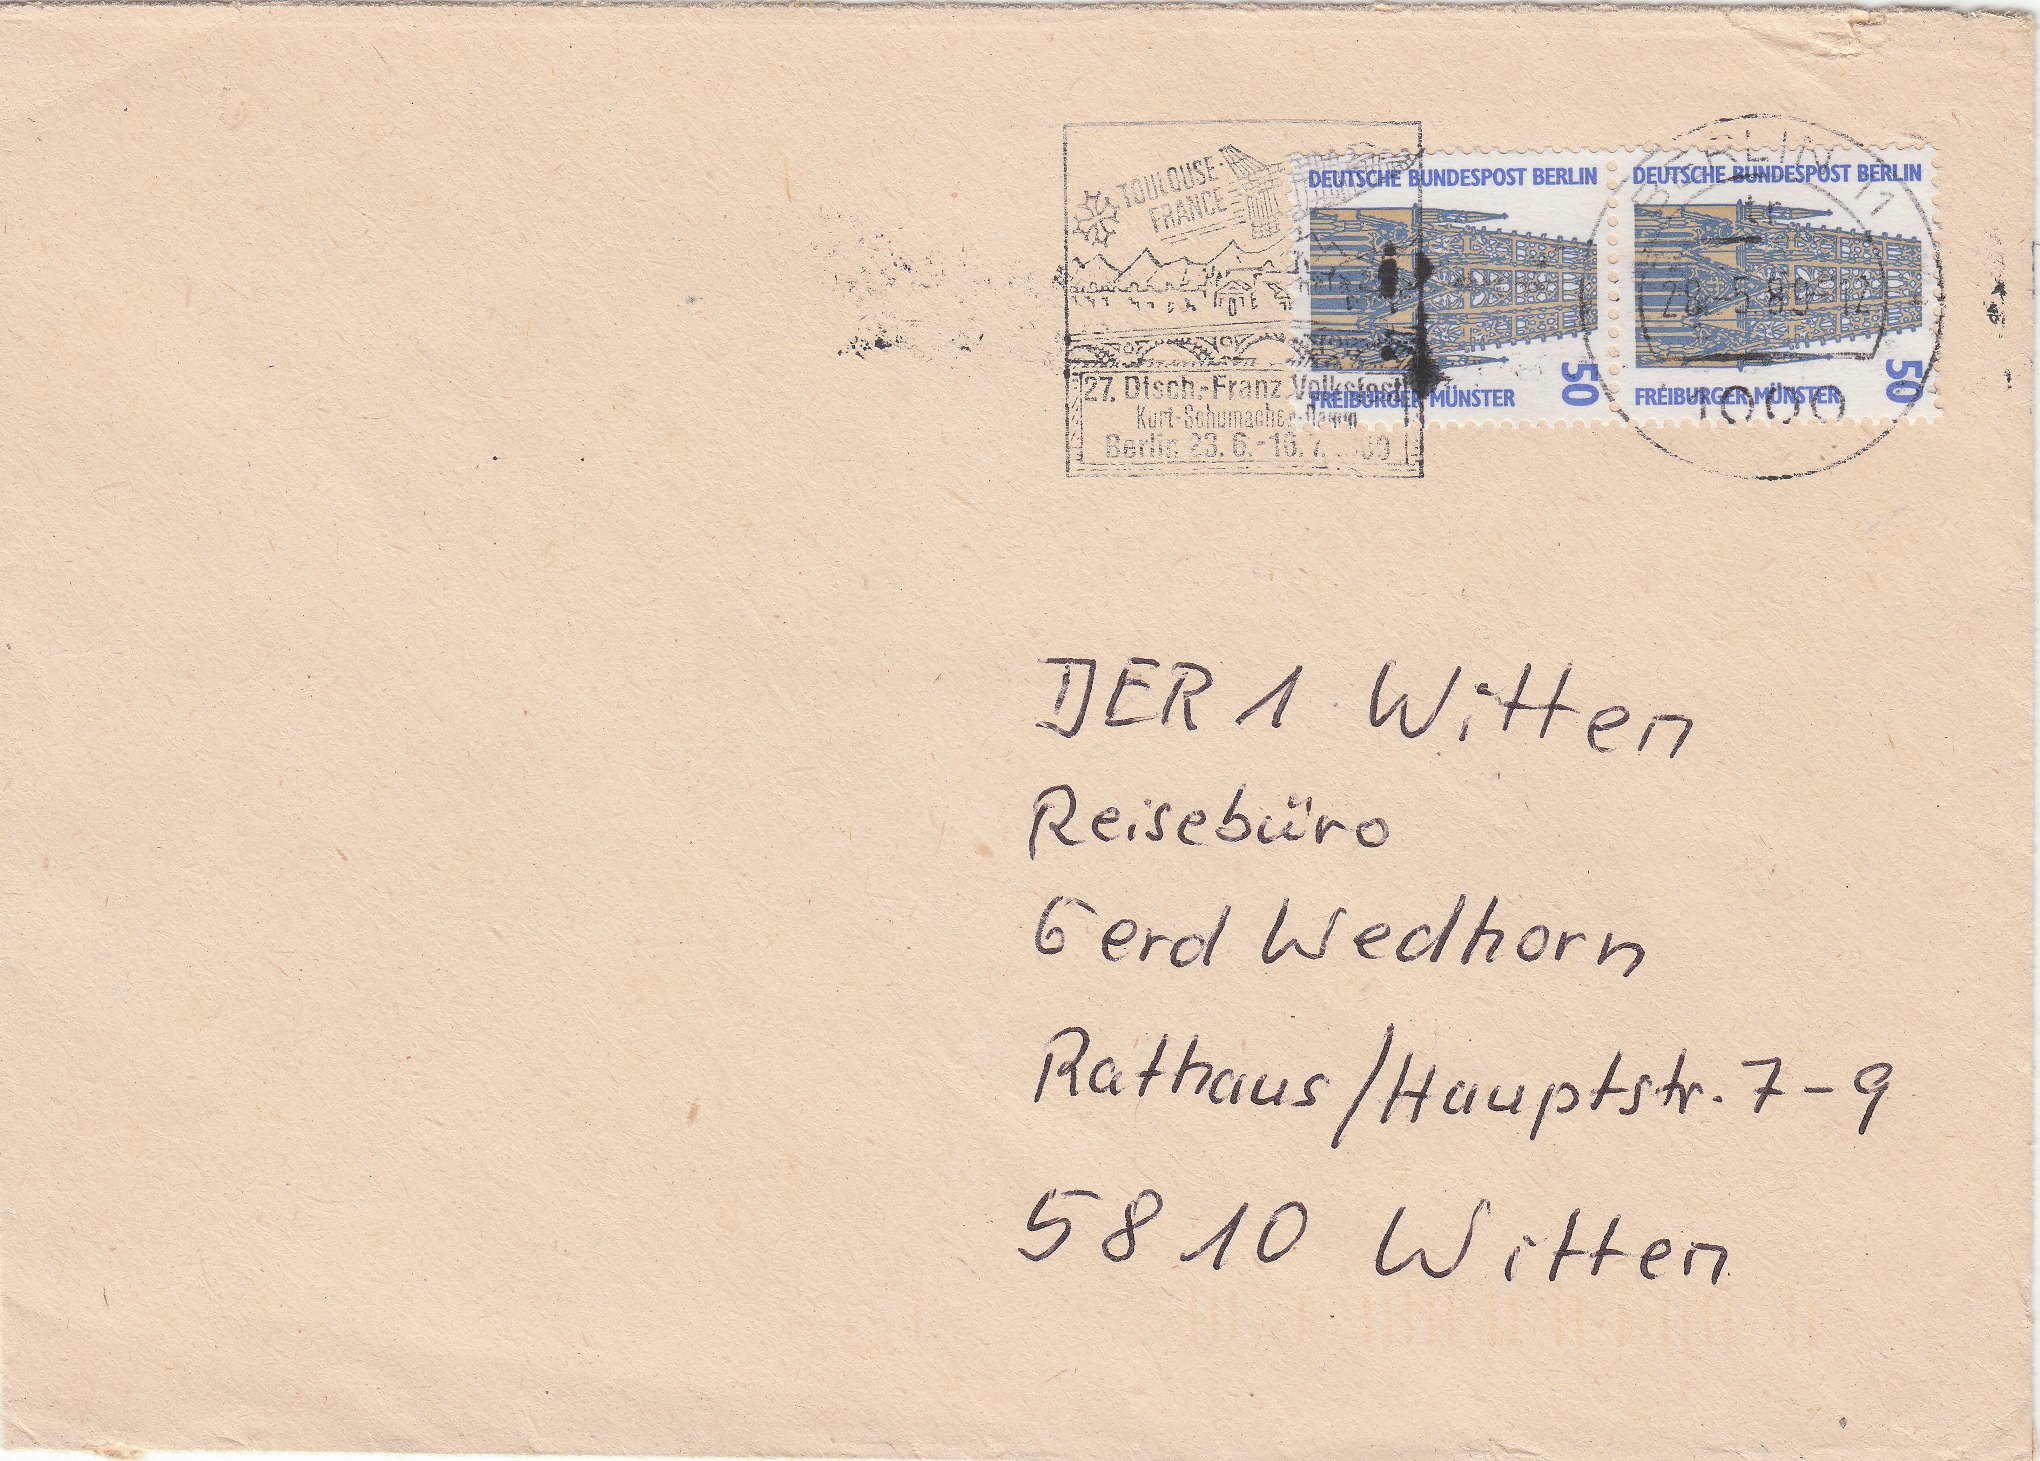 TOULOUSE-
FRANCE
27. Dtsch.-Franz. Volksfest
Kurt-Schumacher-Damm
Berlin 23. 6.-16. 7.
DEUTSCHE BUNDESPOST BERLIN
50
FREIBURGER MÜNSTER
DEUTSCHE BUNDESPOST BERLIN
50
FREIBURGER MÜNSTER
BERLIN 11
28.-5.89-12
1000
DER 1 Witten
Reisebüro
Gerd Wedhorn
Rathaus/Hauptstr. 7-9
5810 Witten